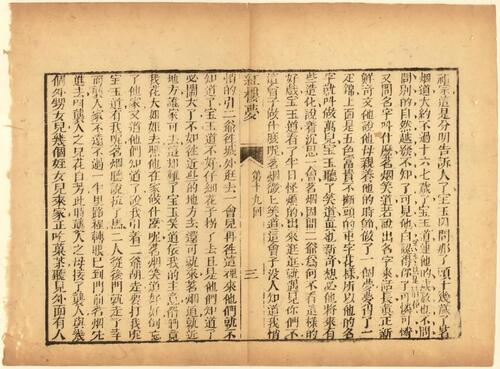 祖宗這是分明告訴人了寶玉因問那丫頭十幾歲了茗
烟道大約不過十六七歲了寶玉道連他的歲數也不問
問別的自然越發不知了可見他白認得你了可憐可憐
又問名字叫什麼茗烟笑道若說出名字來話長真正新
鮮奇文他說他母親養他的時節做了一個夢夢得了一
疋錦上面是五色富貴不斷頭的卍字花樣所以他的名
字就叫做萬兒寶玉聽了笑道真也新奇想必他將來有
些造化說着沉思一會茗烟因問二爺爲何不看這樣的
好戲寶玉道看了半日怪煩的出來逛逛就遇見你們了
這會子做什麼呢茗烟微微笑道這會子沒人知道我悄
紅樓夢 第十九回 三
悄的引二爺往城外逛去一會兒再往這裡來他們就不
知道了寶玉道不好仔細花子拐了去且是他們知道了又
必鬧大了不如往近些的地方去還可就來茗烟道就近
地方誰家可去這却難了寶玉笑道依我的主意咱們竟
找花大姐姐去瞧他在家做什麼呢茗烟笑道好好倒忘
了他家又道他們知道了說我引着二爺胡走要打我呢
寶玉道有我呢茗烟聽說拉了馬二人從後門就走了幸
而襲人家不遠不過一半里路程轉眼已到門前茗烟先
進去叫襲人之兄花自芳此時襲人之母接了襲人與幾
個外甥女兒幾個姪女兒來家正吃菓茶聽見外面有人